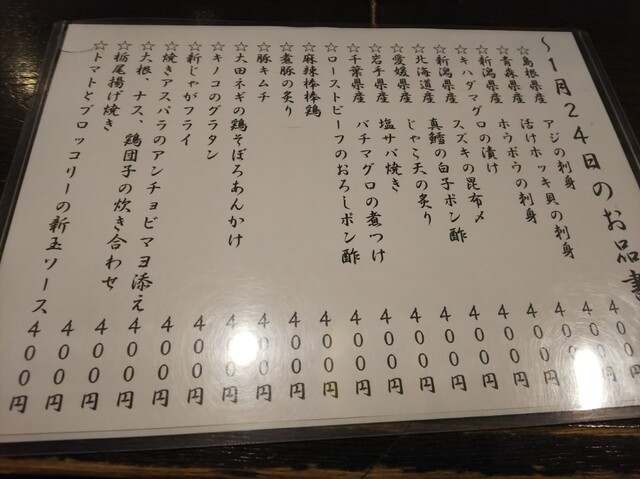 〜1月24日のお品書
☆島根県産 アジの刺身 400円
☆青森県産 活けホッキ貝の刺身 400円
☆新潟県産 ホウボウの刺身 400円
☆キハダマグロの漬け 400円
☆新潟県産 スズキの昆布〆 400円
☆北海道産 真鱈の白子ポン酢 400円
☆愛媛県産 じゃこ天の炙り 400円
☆岩手県産 塩サバ焼き 400円
☆千葉県産 バチマグロの煮つけ 400円
☆ローストビーフのおろしポン酢 400円
☆麻辣棒棒鶏 400円
☆煮豚の炙り 400円
☆豚キムチ 400円
☆大田ネギの鶏そぼろあんかけ 400円
☆キノコのグラタン 400円
☆新じゃがフライ 400円
☆焼きアスパラのアンチョビマヨ添え 400円
☆大根、ナス、鶏団子の炊き合わせ 400円
☆栃尾揚げ焼き 400円
☆トマトとブロッコリーの新玉ソース 400円